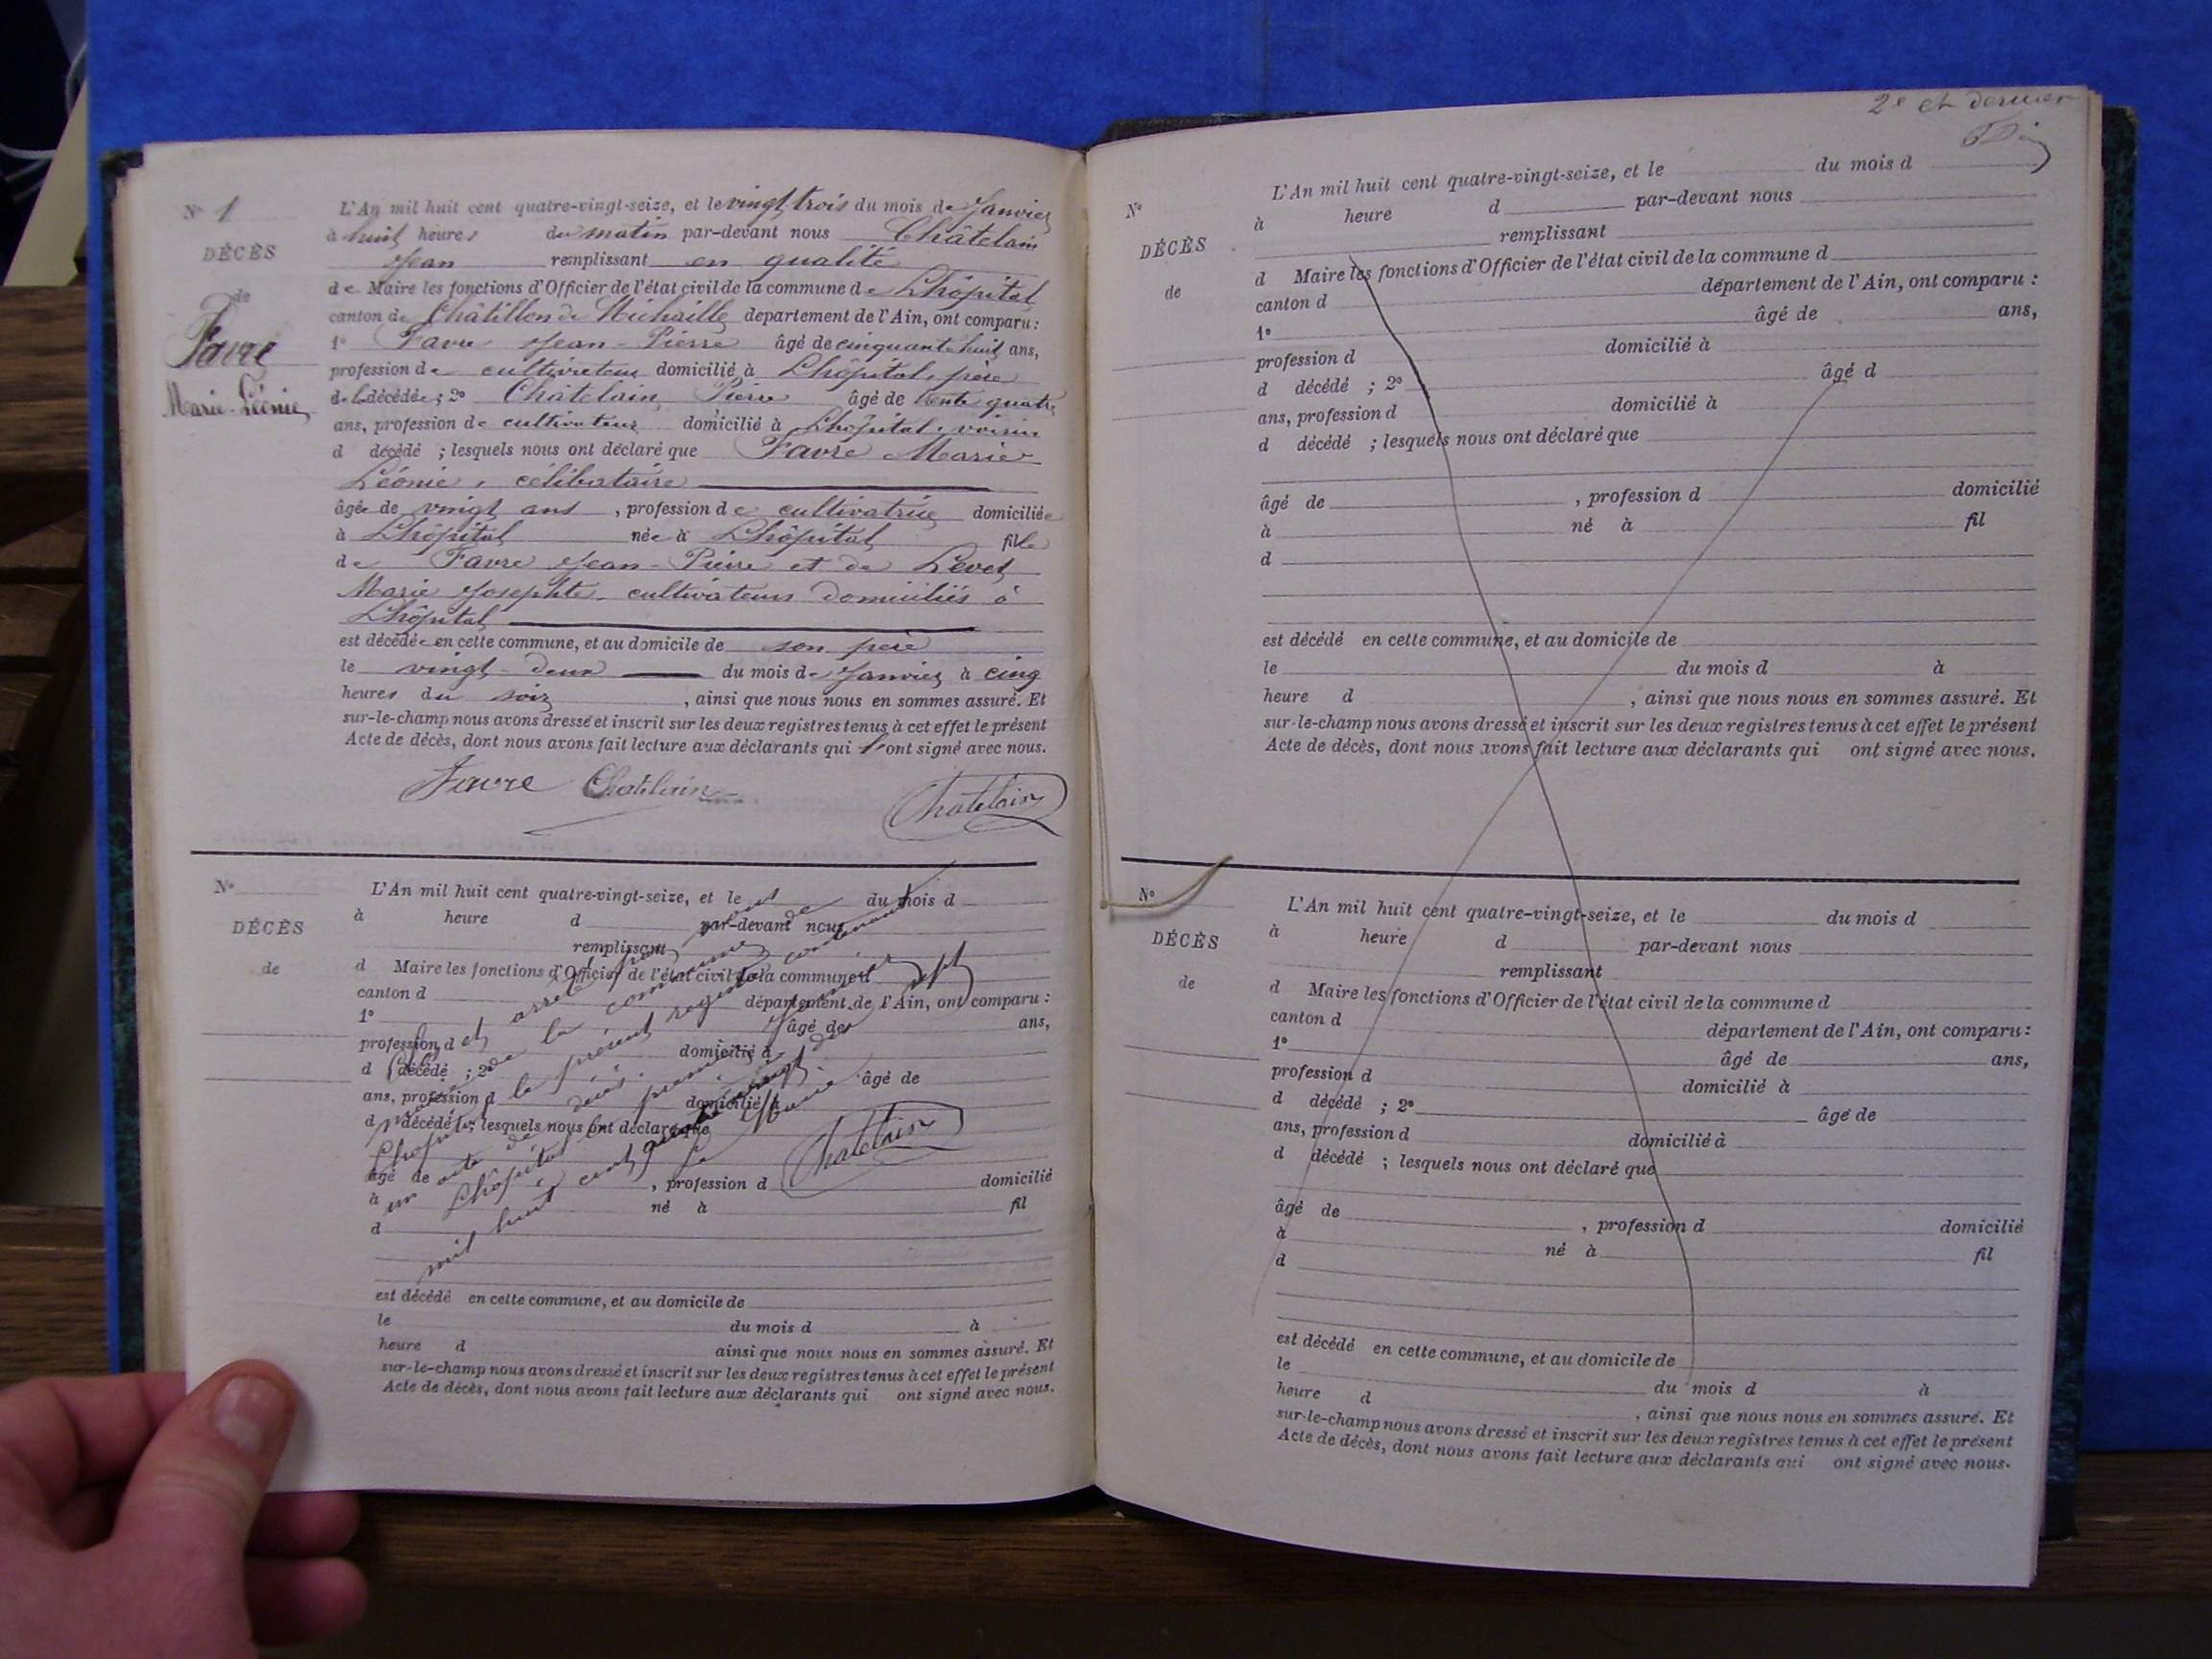 N° 1
DÉCÈS
de
Favre
Marie-Léonie
L'An mil huit cent quatre-vingt-seize, et le vingt-trois du mois de Janvier
à huit heures du matin par-devant nous Châtelain
Jean remplissant en qualité
de Maire les fonctions d'Officier de l'état civil de la commune de Lhôpital
canton de Châtillon de Michaille département de l'Ain, ont comparu :
1° Favre Jean-Pierre âgé de cinquante huit ans,
profession de cultivateur domicilié à Lhôpital, père
de la décédée ; 2° Châtelain Pierre âgé de trente quatre
ans, profession de cultivateur domicilié à Lhôpital, voisin
d décédé ; lesquels nous ont déclaré que Favre Marie
Léonie, célibataire
âgée de vingt ans , profession de cultivatrice domiciliée
à Lhôpital née à Lhôpital fille
de Favre Jean-Pierre et de Levet
Marie Josephte, cultivateurs domiciliés à
Lhôpital
est décédée en cette commune, et au domicile de son père
le vingt-deux du mois de Janvier à cinq
heures du soir , ainsi que nous nous en sommes assuré. Et
sur-le-champ nous avons dressé et inscrit sur les deux registres tenus à cet effet le présent
Acte de décès, dont nous avons fait lecture aux déclarants qui l'ont signé avec nous.
Favre Chatelain
Chatelain
N°
DÉCÈS
de
L'An mil huit cent quatre-vingt-seize, et le du mois d
à heure d par-devant nous
remplissant
d Maire les fonctions d'Officier de l'état civil de la commune d
canton d département de l'Ain, ont comparu :
1° âgé de ans,
profession d domicilié à
d décédé ; 2° âgé de
ans, profession d domicilié à
d décédé ; lesquels nous ont déclaré que
âgé de , profession d domicilié
à né à fil
d
est décédé en cette commune, et au domicile de
le du mois d à
heure d ainsi que nous nous en sommes assuré. Et
sur-le-champ nous avons dressé et inscrit sur les deux registres tenus à cet effet le présent
Acte de décès, dont nous avons fait lecture aux déclarants qui ont signé avec nous.
et arrêté par nous
de la commune de
Lhôpital le présent registre contenant
un acte de décès.
Lhôpital le premier Janvier
mil huit cent quatre-vingt dix sept
Le Maire
Chatelain
2e et dernier
N°
DÉCÈS
de
L'An mil huit cent quatre-vingt-seize, et le du mois d
à heure d par-devant nous
remplissant
d Maire les fonctions d'Officier de l'état civil de la commune d
canton d département de l'Ain, ont comparu :
1° âgé de ans,
profession d domicilié à
d décédé ; 2° âgé d
ans, profession d domicilié à
d décédé ; lesquels nous ont déclaré que
âgé de , profession d domicilié
à né à fil
d
est décédé en cette commune, et au domicile de
le du mois d à
heure d , ainsi que nous nous en sommes assuré. Et
sur-le-champ nous avons dressé et inscrit sur les deux registres tenus à cet effet le présent
Acte de décès, dont nous avons fait lecture aux déclarants qui ont signé avec nous.
N°
DÉCÈS
de
L'An mil huit cent quatre-vingt-seize, et le du mois d
à heure d par-devant nous
remplissant
d Maire les fonctions d'Officier de l'état civil de la commune d
canton d département de l'Ain, ont comparu :
1° âgé de ans,
profession d domicilié à
d décédé ; 2° âgé de
ans, profession d domicilié à
d décédé ; lesquels nous ont déclaré que
âgé de , profession d domicilié
à né à fil
d
est décédé en cette commune, et au domicile de
le du mois d à
heure d , ainsi que nous nous en sommes assuré. Et
sur-le-champ nous avons dressé et inscrit sur les deux registres tenus à cet effet le présent
Acte de décès, dont nous avons fait lecture aux déclarants qui ont signé avec nous.